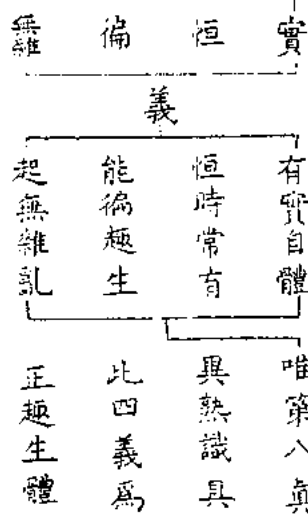 實
恒
徧
無雜
義
有實自體
恒時常有
能徧趣生
起無雜亂
唯第八眞
異熟識具
此四義爲
正趣生體